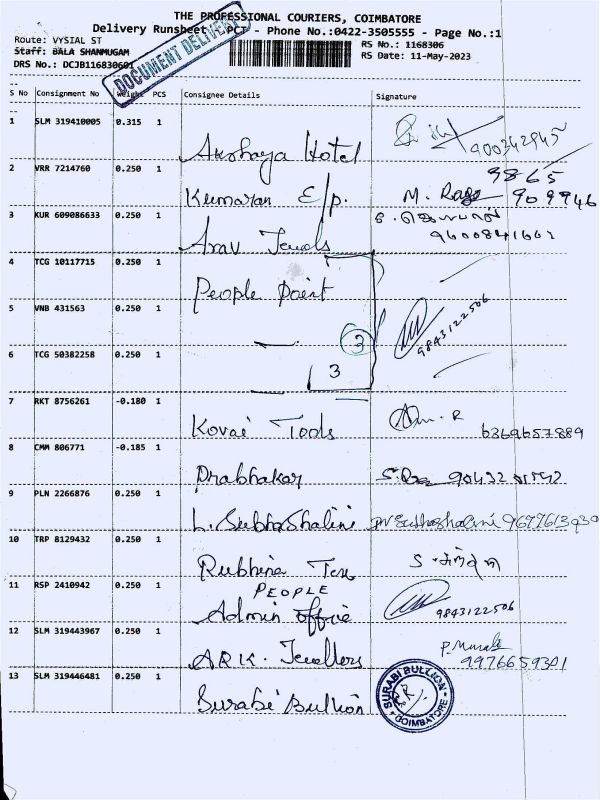 THE PROFESSIONAL COURIERS, COIMBATORE
Delivery Runsheet PCT - Phone No.:0422-3505555 - Page No.:1
Route: VYSIAL ST
RS No.: 1168306
Staff: BALA SHANMUGAM
RS Date: 11-May-2023
DRS No.: DCJB116830601
DOCUMENT DELIVERY
S No Consignment No Weight PCS Consignee Details Signature
1 SLM 319410005 0.315 1 Akshaya Hotel 900342945
2 VRR 7214760 0.250 1 Kumaran E/p. M. Raga 9865 909946
3 KUR 609086633 0.250 1 Arav Jewels 9600841662
4 TCG 10117715 0.250 1 People Point
5 VNB 431563 0.250 1 3 9843122506
6 TCG 50382258 0.250 1 3
7 RKT 8756261 -0.180 1 Kovai Tools R 6369657889
8 CMM 806771 -0.185 1 Prabhakar
9 PLN 2266876 0.250 1 L. SubhaShalini
10 TRP 8129432 0.250 1 Rubhine
11 RSP 2410942 0.250 1 PEOPLE Admin office 9843122506
12 SLM 319443967 0.250 1 ARK. Jewellers P. Murali 9976659301
13 SLM 319446481 0.250 1 Surabi Bullion
SURABI BULLION
COIMBATORE